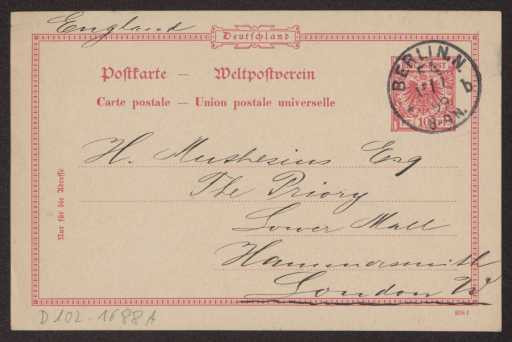 England
Deutschland
Postkarte — Weltpostverein
Carte postale — Union postale universelle
BERLIN.N.
8-9N.
10
H. Muthesius Esq
The Priory
Lower Mall
Hammersmith
London W
Nur für die Adresse
D102-1688A